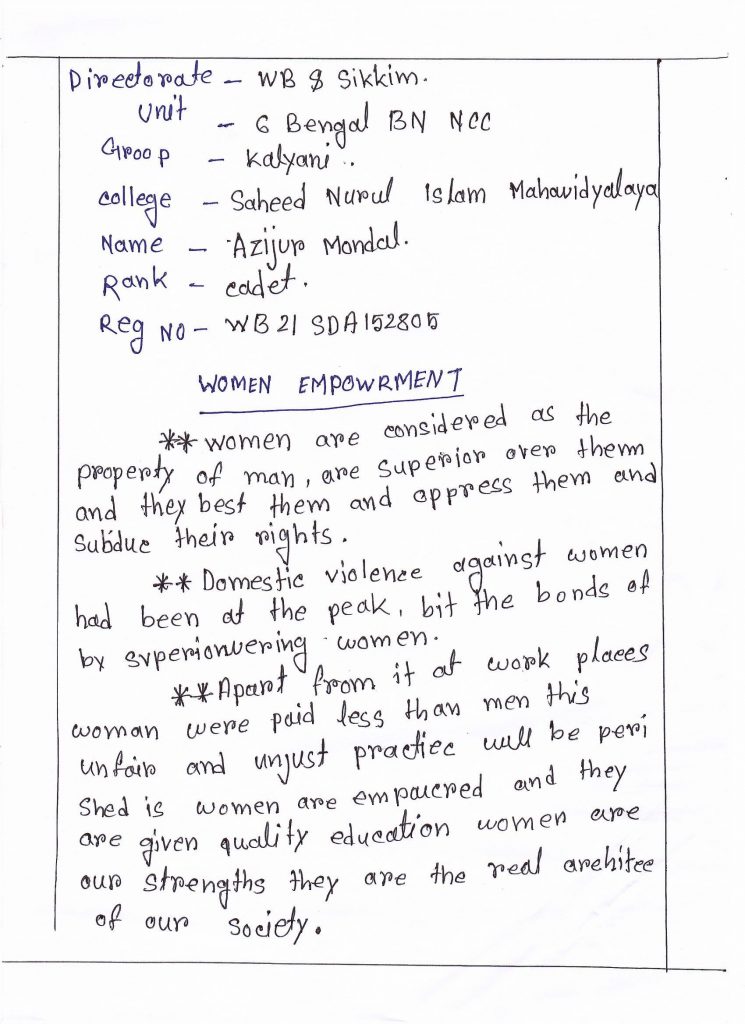 Directorate - WB & Sikkim.
Unit - 6 Bengal BN NCC
Groop - Kalyani..
College - Saheed Nurul Islam Mahavidyalaya
Name - Azijur Mondal.
Rank - cadet.
Reg NO - WB 21 SDA152805
WOMEN EMPOWRMENT
** women are considered as the
property of man, are superior over them
and they best them and oppress them and
Subdue their rights.
** Domestic violence against women
had been at the peak, bit the bonds of
by superionvering women.
** Apart from it at work places
woman were paid less than men this
unfair and unjust practiec will be peri
Shed is women are empowered and they
are given quality education women are
our strengths they are the real architec
of our society.